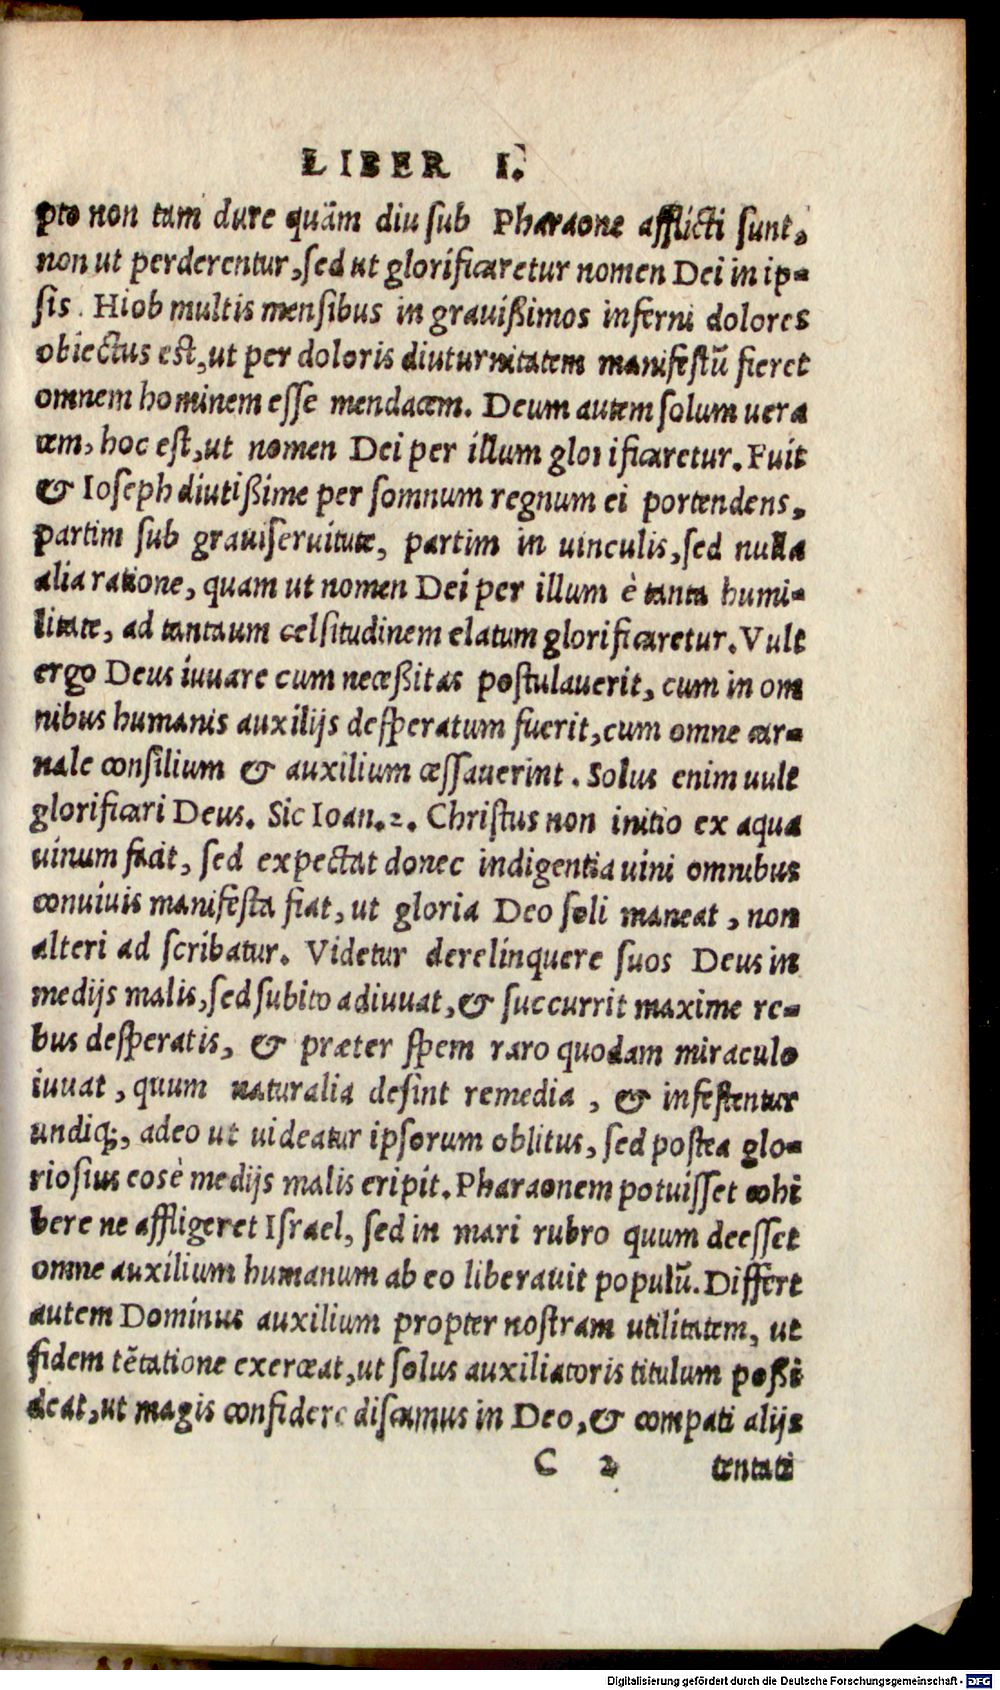 LIBER I.
pto non tam dure quàm diu sub Pharaone afflicti sunt,
non ut perderentur, sed ut glorificaretur nomen Dei in ip-
sis. Hiob multis mensibus in grauißimos inferni dolores
obiectus est, ut per doloris diuturnitatem manifestũ fieret
omnem hominem esse mendacem. Deum autem solum uera
cem, hoc est, ut nomen Dei per illum glorificaretur. Fuit
& Ioseph diutißime per somnum regnum ei portendens,
partim sub graui seruitute, partim in uinculis, sed nulla
alia ratione, quam ut nomen Dei per illum è tanta humi-
litate, ad tantaum celsitudinem elatum glorificaretur. Vult
ergo Deus iuuare cum neceßitas postulauerit, cum in om
nibus humanis auxilijs desperatum fuerit, cum omne car-
nale consilium & auxilium cessauerint. Solus enim uult
glorificari Deus. Sic Ioan. 2. Christus non initio ex aqua
uinum facit, sed expectat donec indigentia uini omnibus
conuiuis manifesta fiat, ut gloria Deo soli maneat, non
alteri ad scribatur. Videtur derelinquere suos Deus in
medijs malis, sed subito adiuuat, & succurrit maxime re-
bus desperatis, & præter spem raro quodam miraculo
iuuat, quum naturalia desint remedia, & infestentur
undiq;, adeo ut uideatur ipsorum oblitus, sed postea glo-
riosius eos è medijs malis eripit. Pharaonem potuisset cohi
bere ne affligeret Israel, sed in mari rubro quum deesset
omne auxilium humanum ab eo liberauit populũ. Differt
autem Dominus auxilium propter nostram utilitatem, ut
fidem tẽtatione exerceat, ut solus auxiliatoris titulum poßi
deat, ut magis confidere discamus in Deo, & compati alijs
C 2 tentati
Digitalisierung gefördert durch die Deutsche Forschungsgemeinschaft - DFG